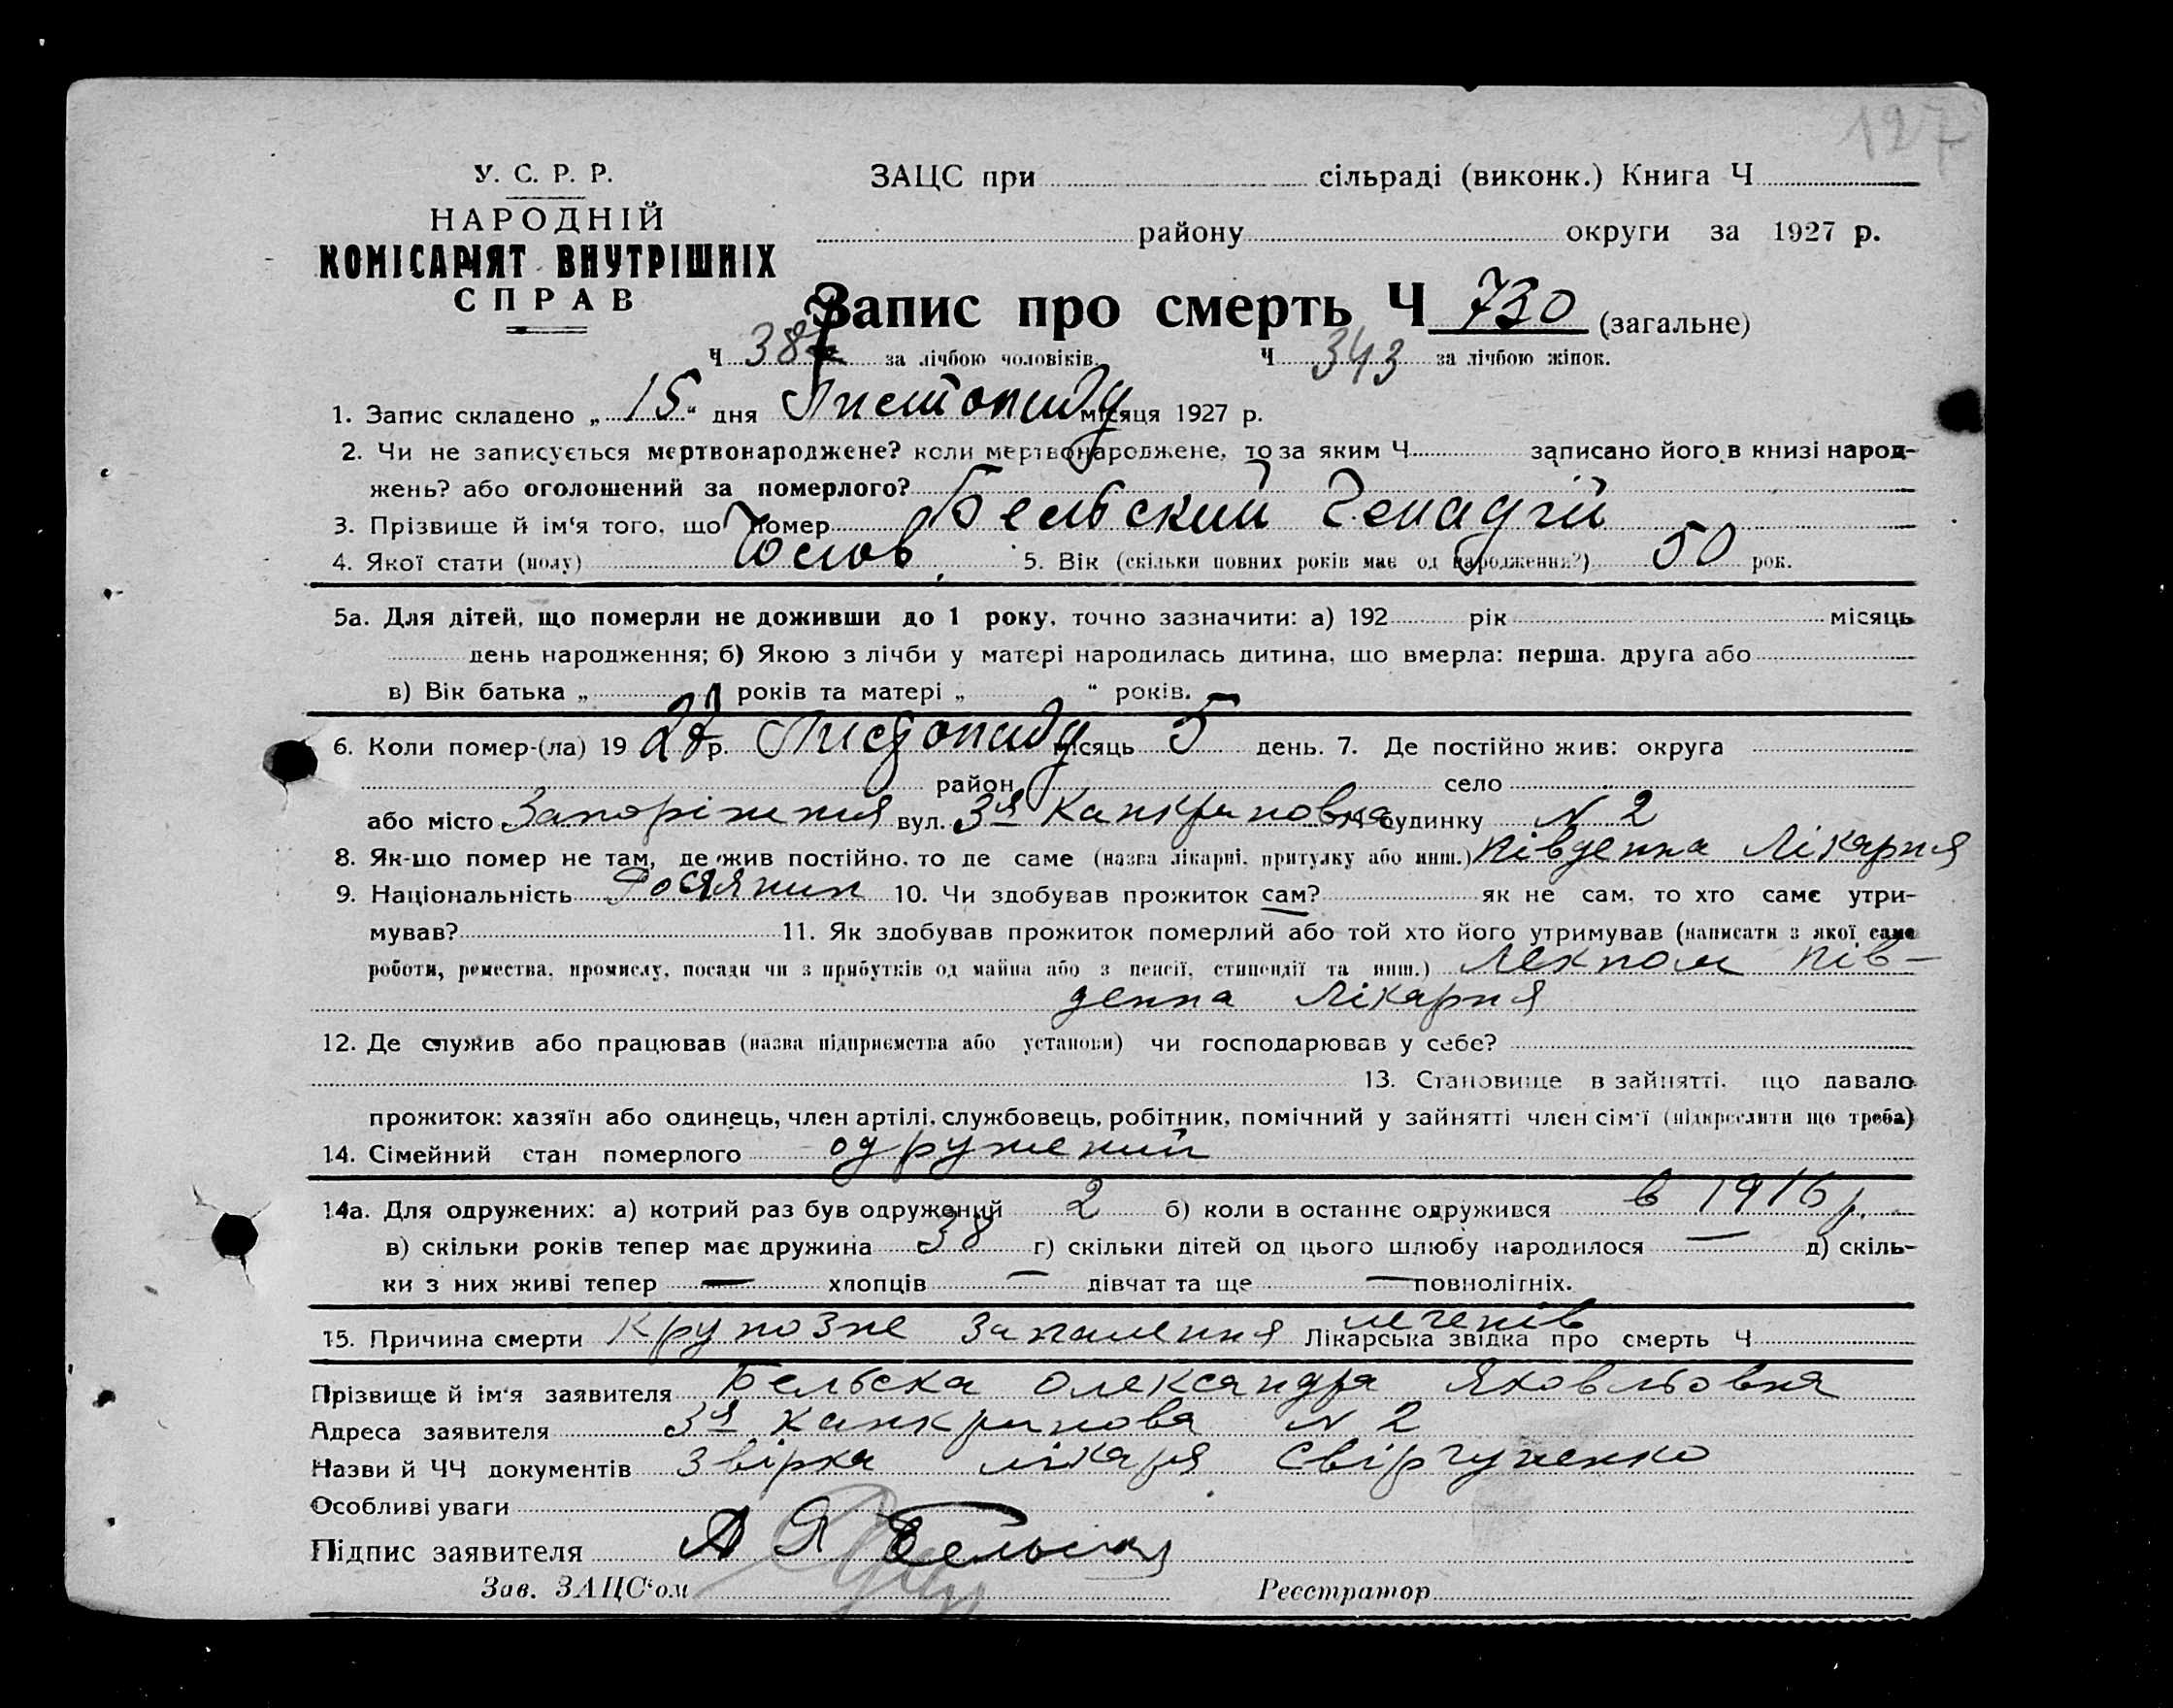 127
У. С. Р. Р.
НАРОДНІЙ
КОМІСАРІЯТ ВНУТРІШНІХ
СПРАВ
ЗАЦС при сільраді (виконк.) Книга Ч
району округи за 1927 р.
Запис про смерть Ч 730 (загальне)
Ч 387 за лічбою чоловіків. Ч 343 за лічбою жінок.
1. Запис складено „ 15 “ дня Листопаду місяця 1927 р.
2. Чи не записується мертвонароджене? коли мертвонароджене, то за яким Ч записано його в книзі народ-
жень? або оголошений за померлого?
3. Прізвище й ім‘я того, що помер Бельский Генадгій
4. Якої стати (полу) Чолов. 5. Вік (скільки повних років має од народження?) 50 рок.
5а. Для дітей, що померли не доживши до 1 року, точно зазначити: а) 192 рік місяць
день народження; б) Якою з лічби у матері народилась дитина, що вмерла: перша, друга або
в) Вік батька „ років та матері „ “ років.
6. Коли помер-(ла) 19 27 р. Листопаду місяць 5 день. 7. Де постійно жив: округа
район село
або місто Запоріжжя вул. 3я Канкриновка Ч будинку N 2
8. Як-що помер не там, де жив постійно, то де саме (назва лікарні, притулку або инш.) Південна Лікарня
9. Національність Росіянин 10. Чи здобував прожиток сам? як не сам, то хто саме утри-
мував? 11. Як здобував прожиток померлий або той хто його утримував (написати з якої саме
роботи, ремества, промислу, посади чи з прибутків од майна або з пенсії, стипендії та инш.) Лекпом Пів-
денна Лікарня
12. Де служив або працював (назва підприємства або установи) чи господарював у себе?
13. Становище в зайнятті, що давало
прожиток: хазяїн або одинець, член артілі, службовець, робітник, помічний у зайнятті член сім‘ї (підкреслити що треба)
14. Сімейний стан померлого одружений
14а. Для одружених: а) котрий раз був одружений 2 б) коли в останнє одружився в 1916 р.
в) скільки років тепер має дружина 38 г) скільки дітей од цього шлюбу народилося — д) скіль-
ки з них живі тепер — хлопців — дівчат та ще — повнолітніх.
15. Причина смерти Крупозне Запалення легенів Лікарська звідка про смерть Ч
Прізвище й ім‘я заявителя Бельска Олександра Яковльовна
Адреса заявителя 3я Канкринова N 2
Назви й ЧЧ документів Звірка лікаря Свіргуненко
Особливі уваги
Підпис заявителя А Я Бельская
Зав. ЗАЦС‘ом Реєстратор